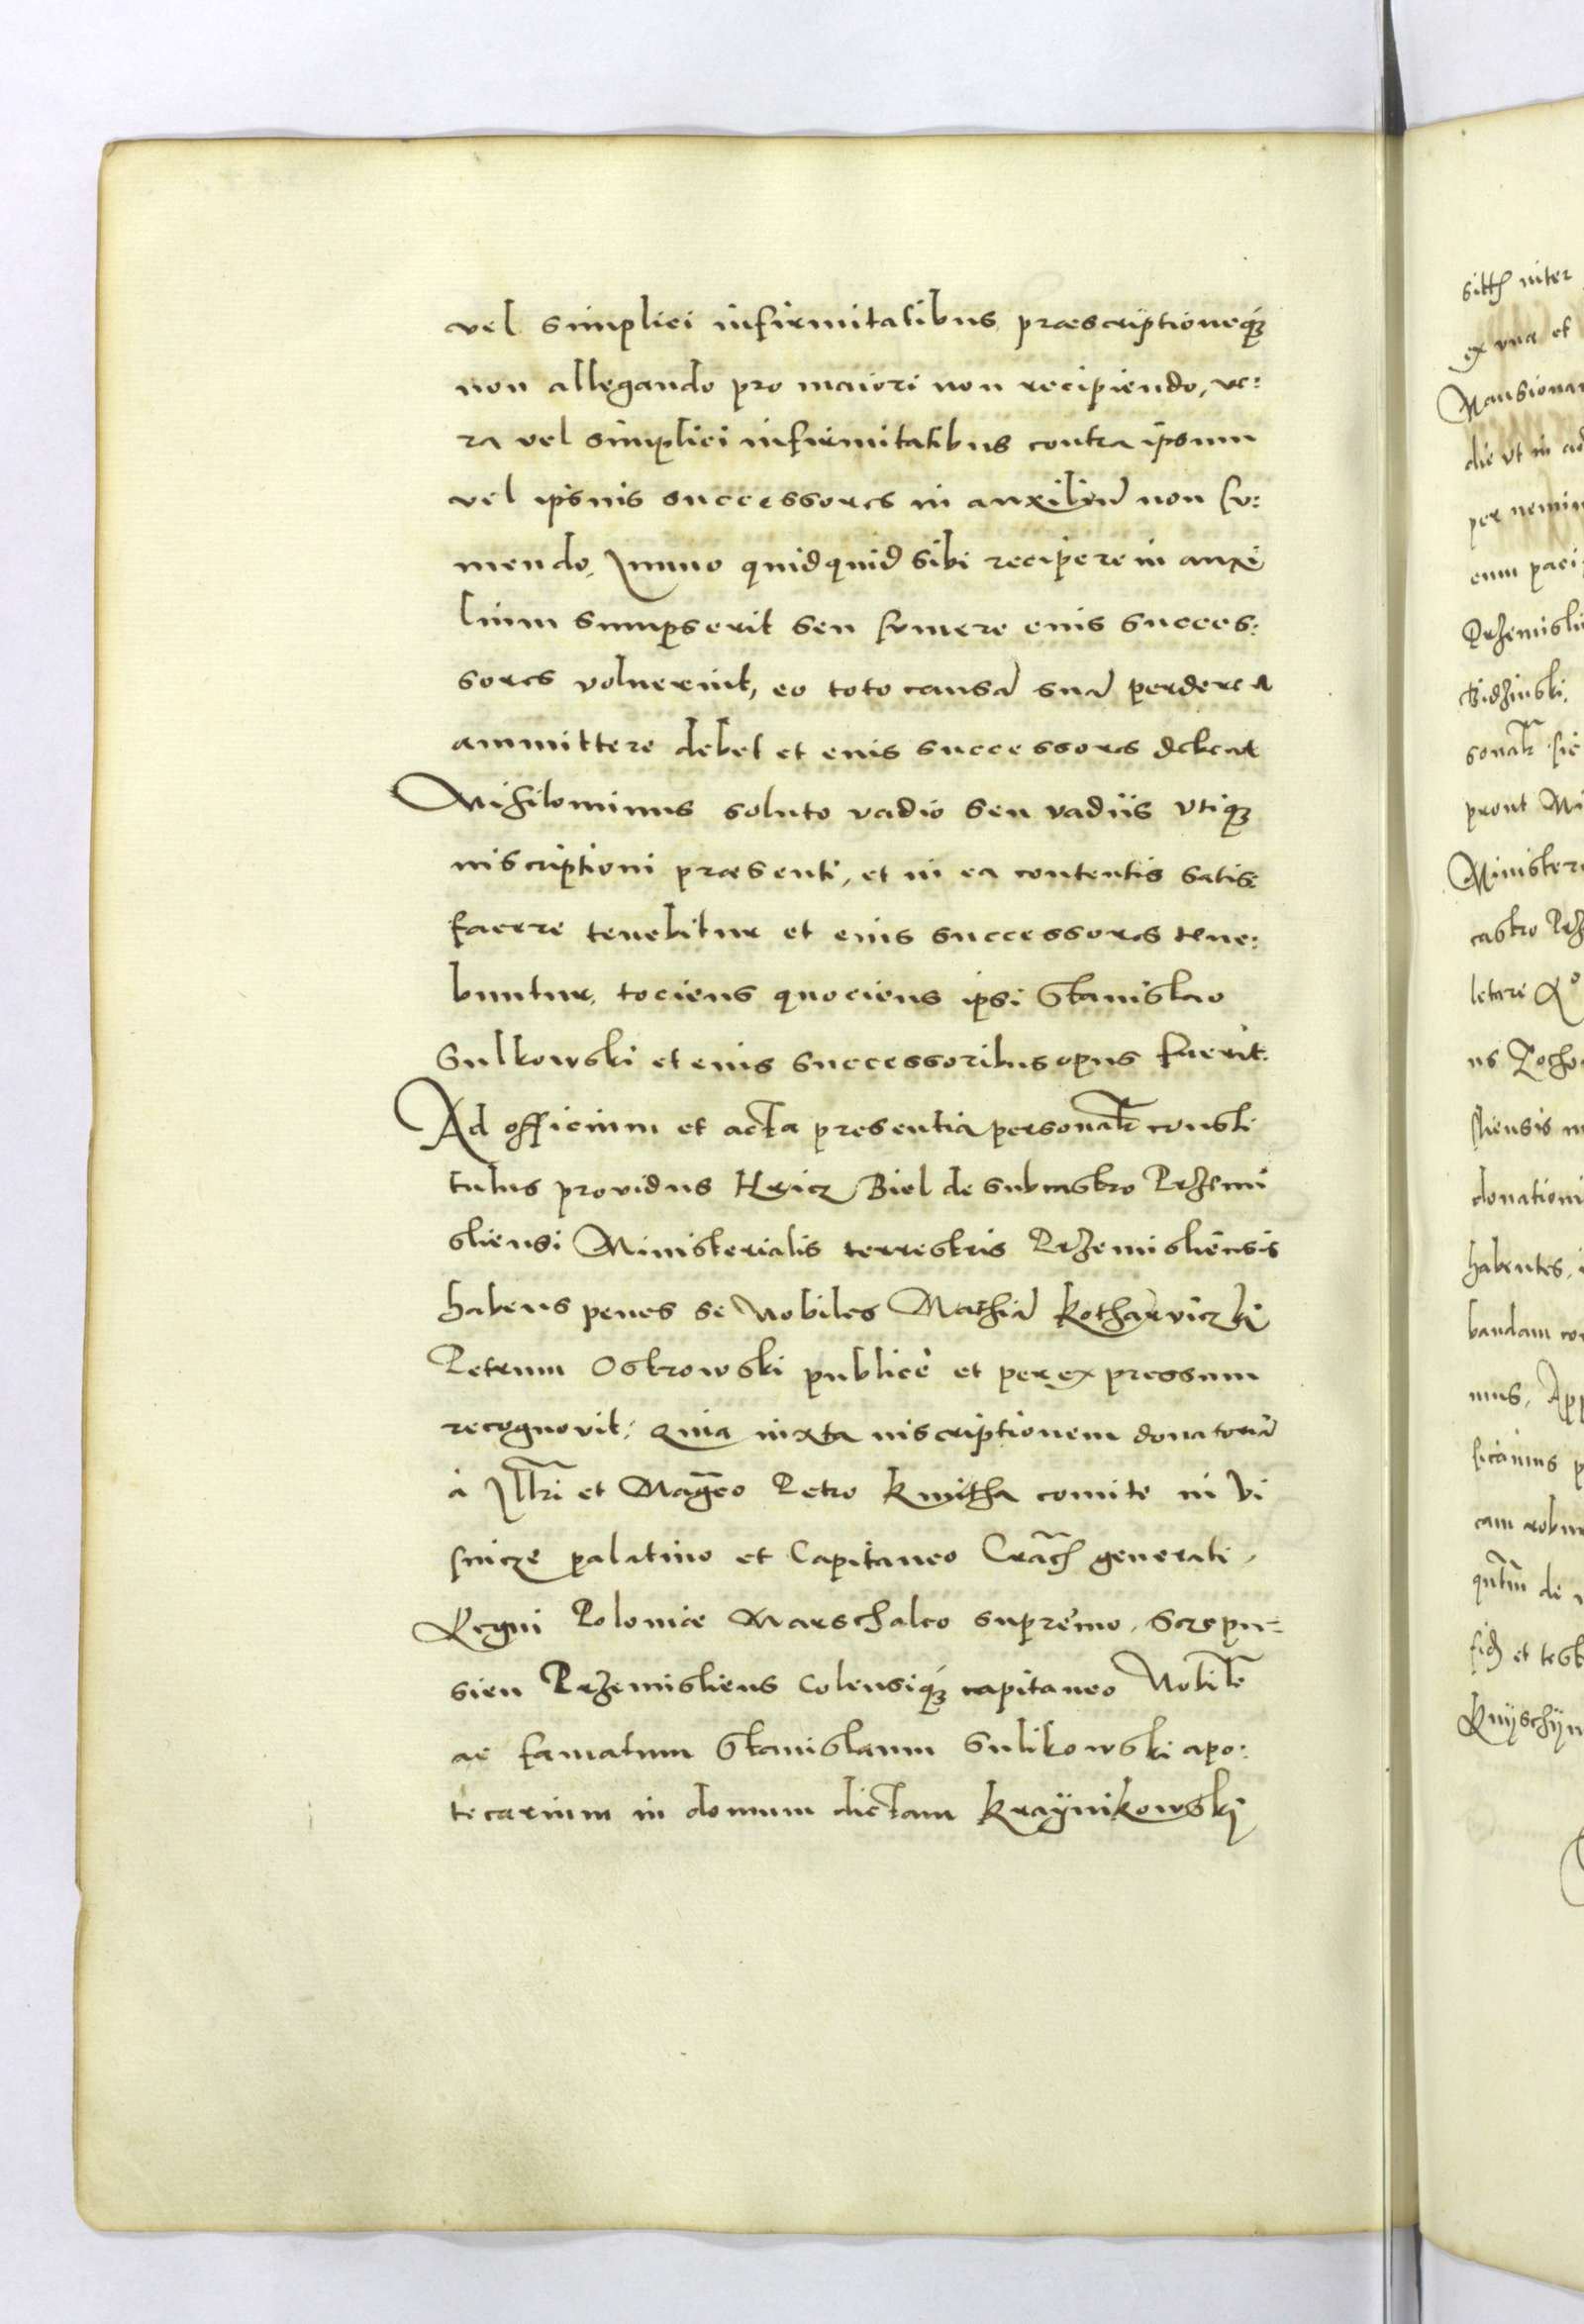 vel simplici infirmitatibus, præscriptioneq3
non allegando pro maiori non recipiendo, ve:
ra vel simplici infirmitatibus contra ipsum
vel ipsius successores in auxiliũ non su:
mendo, Immo quidquid sibi recipere in auxi
lium sumpserit seu sumere eius succes:
sores voluerint, eo toto causã suã perdere a
ammittere debet et eius successores debeat
Nihilominus soluto vadio seu vadiis vtiq3
inscriptioni præsenti, et in ea contentis satis:
facere tenebitur et eius successores tene:
buntur, tociens quociens ipsi Stanislao
Sulkowski et eius successoribus opus fuerit.
Ad officium et acta presentia personalr̃ consti
tutus providus Hricz Biel de subcastro Przemi
sliensi Ministerialis terrestris Przemisliensis
habens penes se Nobiles Mathiã Kotharviczki
Petrum Ostrowski publice et per expressum
recognovit: Quia iuxta inscriptionem donatoriã
à Illr̃i et Mag̃co Petro Kmitha comite in Vi
snicze palatino et Capitaneo Crac̃ generali,
Regni Poloniæ Marschalco supremo, Scepu=
sien Przemisliens Colensiq3 capitaneo Nobilẽ
ac famatum Stanislaum Sulikowski apo:
tecarium in domum dictam Kraÿnikowski
sitt̃ inter
ex vna et
Mansionar
die vt in ad
per nemin
eum paci
Przemisli
sonalr̃ sic
prout Mi
Ministeri
castro Prz
letare Aº
sliensis
donationi
habentes,
bandam con
mus, App
cam robur
de
et test